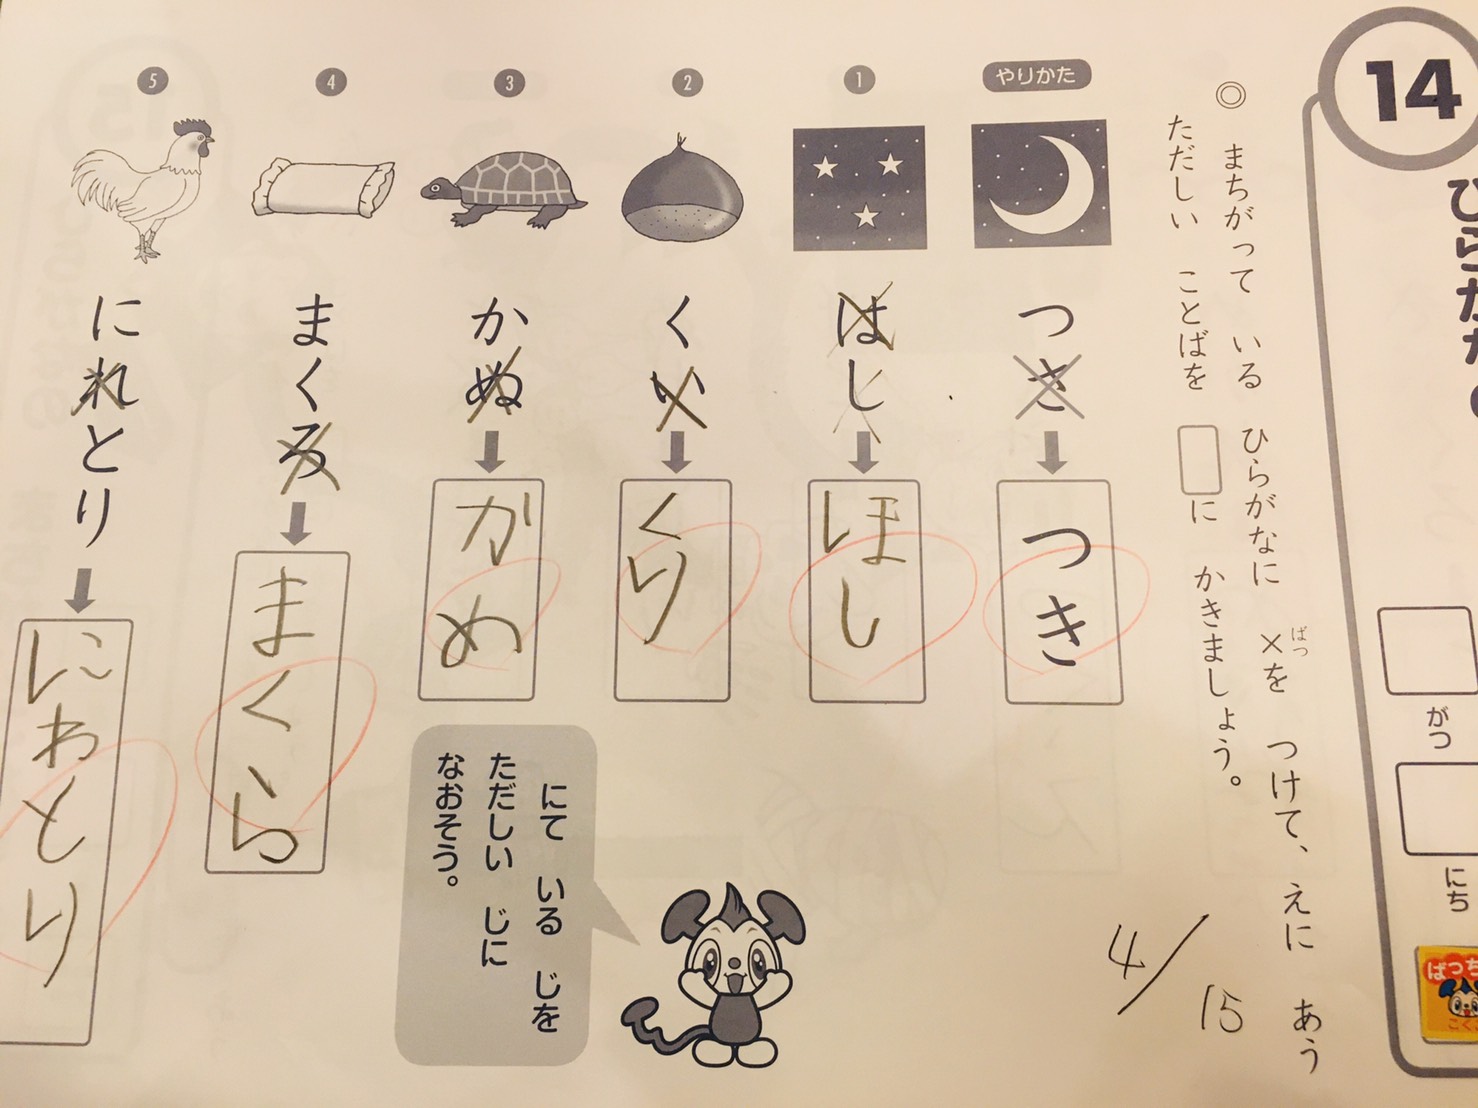 14
がつ
にち
◎ まちがって いる ひらがなに ×を つけて、えに あう
ばつ
ただしい ことばを □に かきましょう。
4/15
やりかた
つさ
つき
1
はし
ほし
2
くい
くり
3
かぬ
かめ
4
まくろ
まくら
5
にれとり
にわとり
にて いる じを
ただしい じに
なおそう。